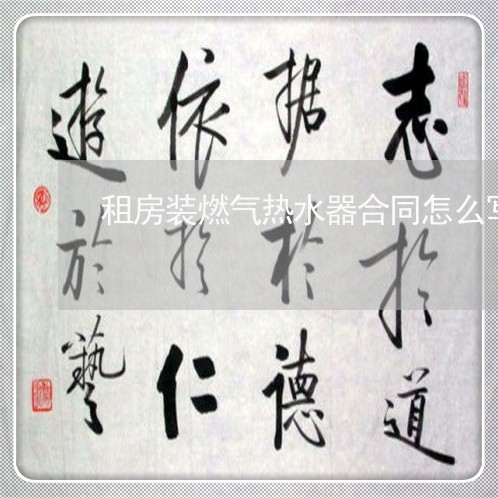 志於道
据於德
依於仁
遊於藝
租房装燃气热水器合同怎么写